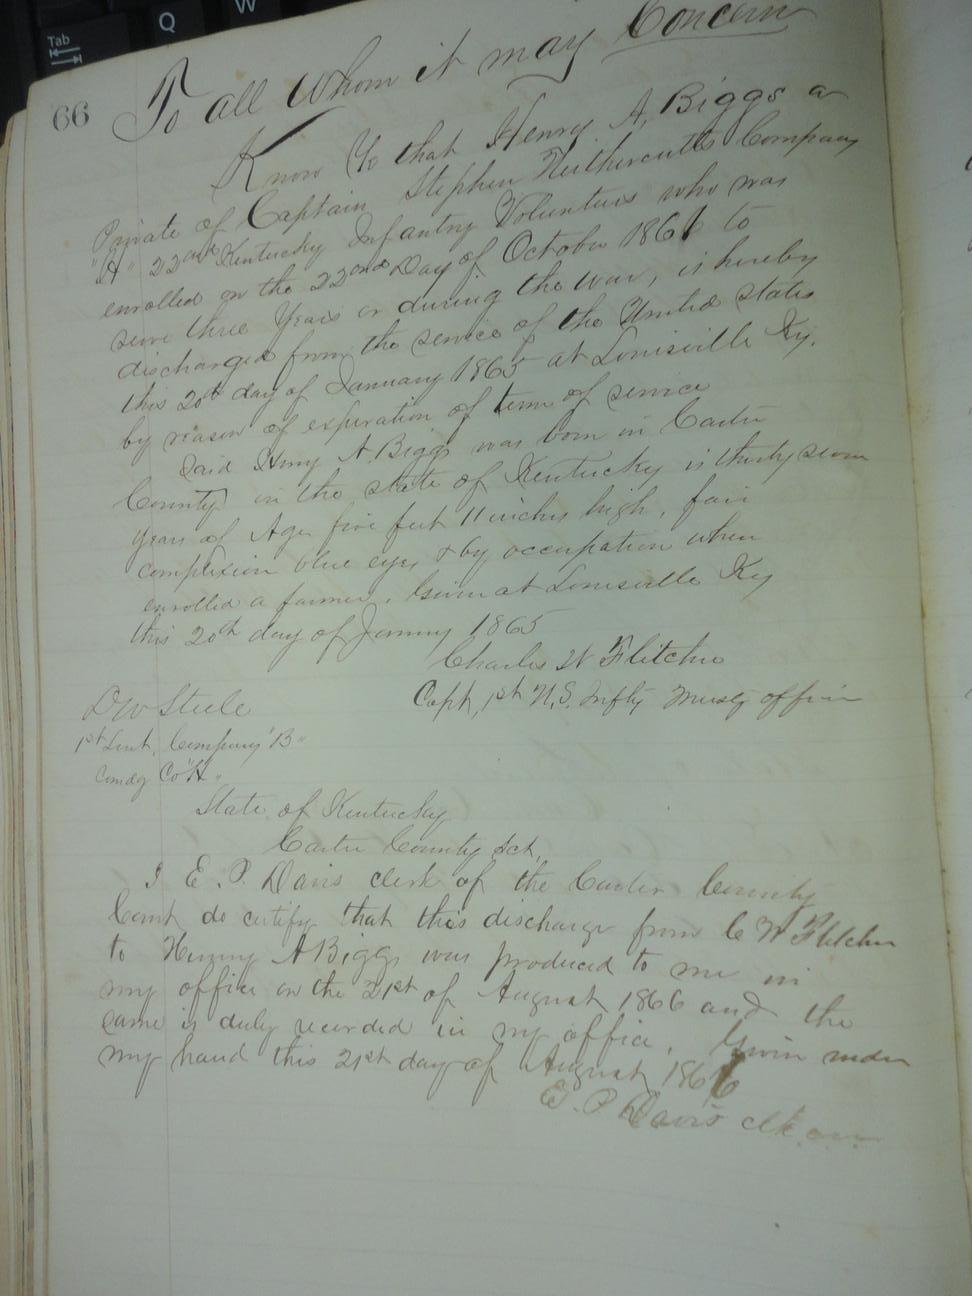 Tab
Q
W
66
To all Whom it may Concern
Know Ye that Henry A, Biggs a
Private of Captain Stephen Nethercutts Company
"H" 22nd Kentucky Infantry Volunteers who was
enrolled on the 22nd Day of October 1861 to
serve three Years or during the war, is hereby
discharged from the service of the United States
this 20th day of January 1865 at Louisville Ky,
by reason of expiration of term of service
Said Henry A. Biggs was born in Carter
County in the state of Kentucky is thirty seven
years of Age five feet 11 inches high, fair
complexion blue eyes & by occupation when
enrolled a farmer. Given at Louisville Ky
this 20th day of January 1865
Charles W Fletcher
Capt, 1st U,S, Infty Mustg officer
D W Steele
1st Lieut, Company "B"
Comdg Co "H"
State of Kentucky
Carter County Sct,
I E. P. Davis clerk of the Carter County
Court do certify that this discharge from C W Fletcher
to Henry A Biggs was produced to me in
my office on the 21st of August 1866 and the
same is duly recorded in my office, Given under
my hand this 21st day of August 1866
E. P Davis clk